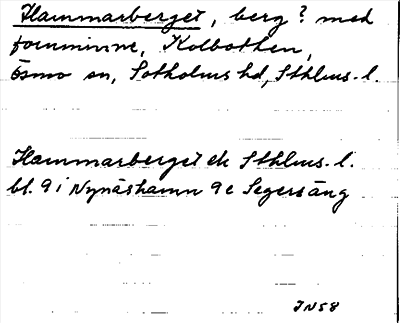 Hammarberget, berg? med
fornminne, Kolbotten,
Ösmo sn, Sotholms hd, Sthlms. l.
Hammarberget ek Sthlms. l.
bl. 9 i Nynäshamn 9e Segersäng
JN58